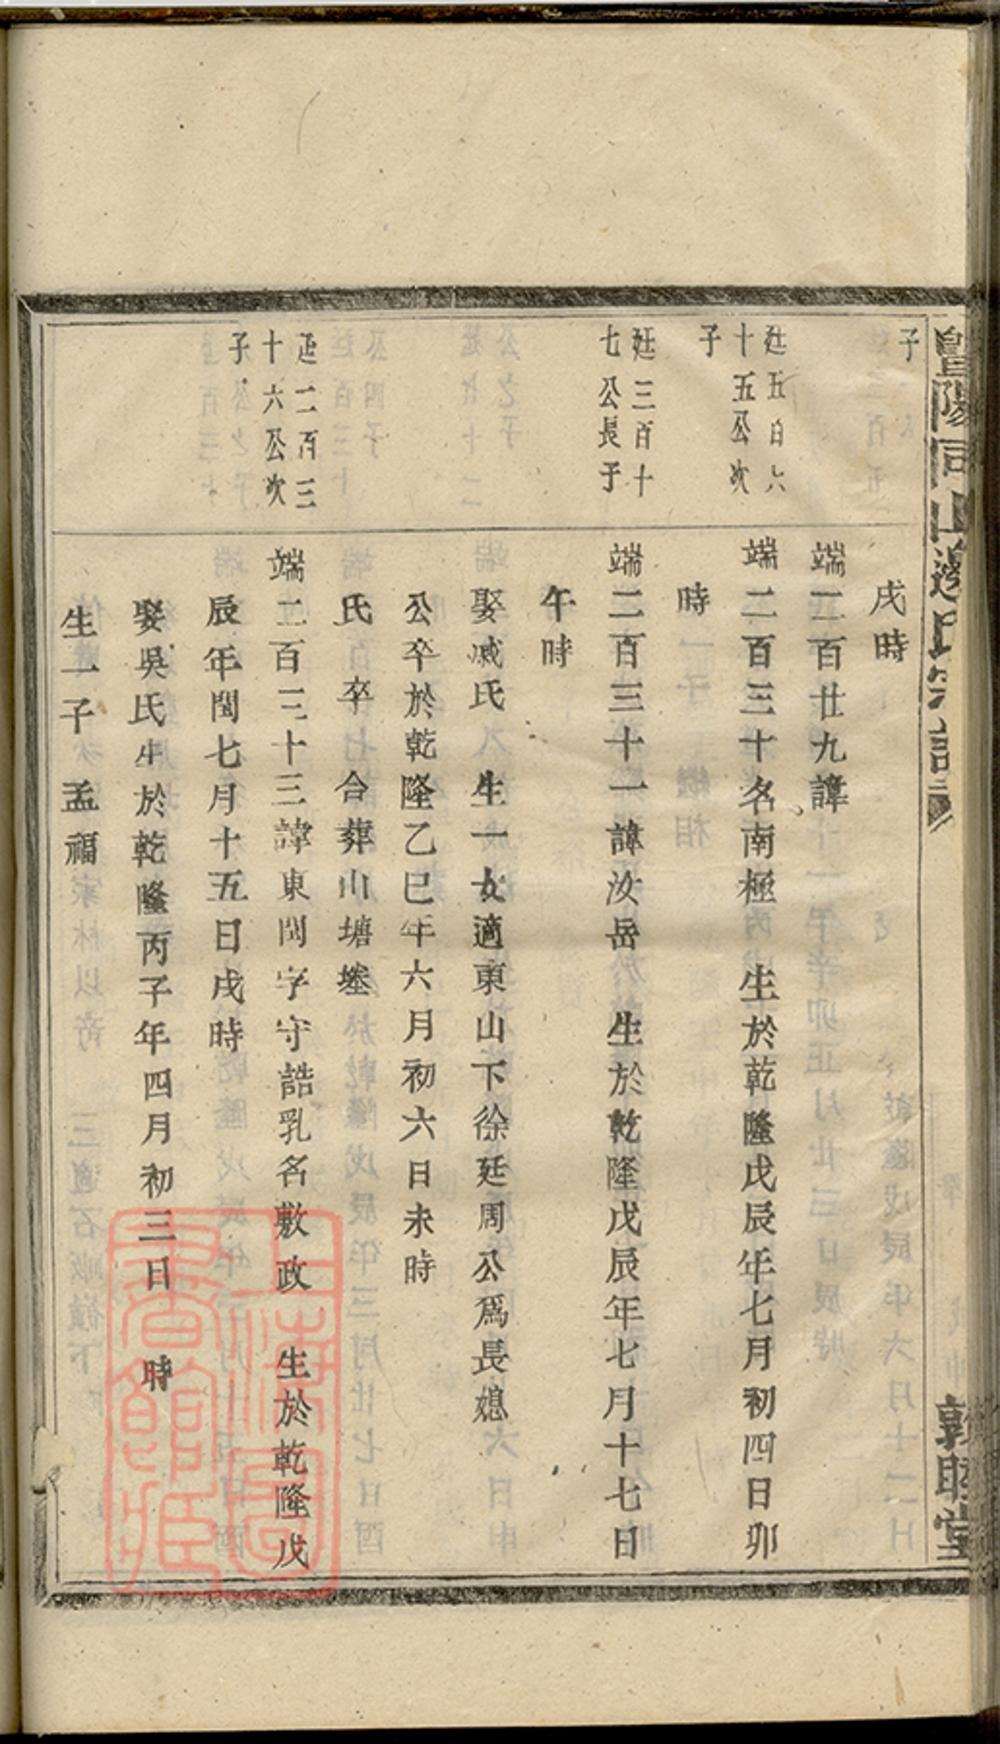 暨陽同山邊氏宗譜
敦睦堂
子
戌時
端二百廿九諱
廷五百六
十五公次
子
端二百三十名南極 生於乾隆戊辰年七月初四日卯
時
廷三百十
七公長子
端二百三十一諱汝岳 生於乾隆戊辰年七月十七日
午時
娶戚氏 生一女適東山下徐廷周公爲長媳
公卒於乾隆乙巳年六月初六日未時
氏 卒 合葬山塘塋
廷二百三
十六公次
子
端二百三十三諱東閩字守誥乳名敷政 生於乾隆戊
辰年閏七月十五日戌時
娶吳氏生於乾隆丙子年四月初三日 時
生一子 孟福
上海圖書館藏